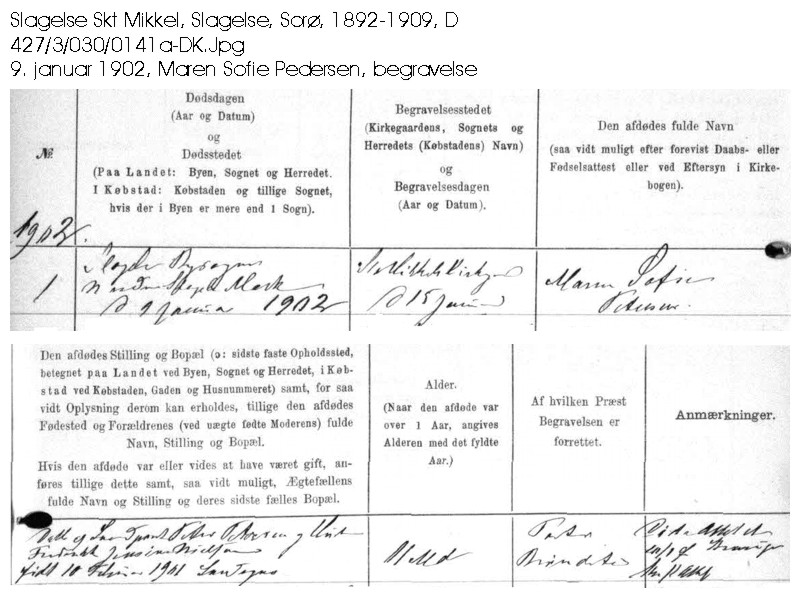 Slagelse Skt Mikkel, Slagelse, Sorø, 1892-1909, D
427/3/030/0141a-DK.Jpg
9. januar 1902, Maren Sofie Pedersen, begravelse
№
Dødsdagen
(Aar og Datum)
og
Dødsstedet
(Paa Landet: Byen, Sognet og Herredet.
I Købstad: Købstaden og tillige Sognet,
hvis der i Byen er mere end 1 Sogn).
Begravelsesstedet
(Kirkegaardens, Sognets og
Herredets (Købstadens) Navn)
og
Begravelsesdagen
(Aar og Datum).
Den afdødes fulde Navn
(saa vidt muligt efter forevist Daabs- eller
Fødselsattest eller ved Eftersyn i Kirke-
bogen).
1902.
1
Mark
d 9 Januar 1902
d 15 Januar
Maren Sofie
Petersen.
Den afdødes Stilling og Bopæl (ɔ: sidste faste Opholdssted,
betegnet paa Landet ved Byen, Sognet og Herredet, i Køb-
stad ved Købstaden, Gaden og Husnummeret) samt, for saa
vidt Oplysning derom kan erholdes, tillige den afdødes
Fødested og Forældrenes (ved uægte fødte Moderens) fulde
Navn, Stilling og Bopæl.
Hvis den afdøde var eller vides at have været gift, an-
føres tillige dette samt, saa vidt muligt, Ægtefællens
fulde Navn og Stilling og deres sidste fælles Bopæl.
Alder.
(Naar den afdøde var
over 1 Aar, angives
Alderen med det fyldte
Aar.)
Af hvilken Præst
Begravelsen er
forrettet.
Anmærkninger.
Peter Petersen og
Jensine Nielsen
født 10 Februar 1901
11 Md
Pastor